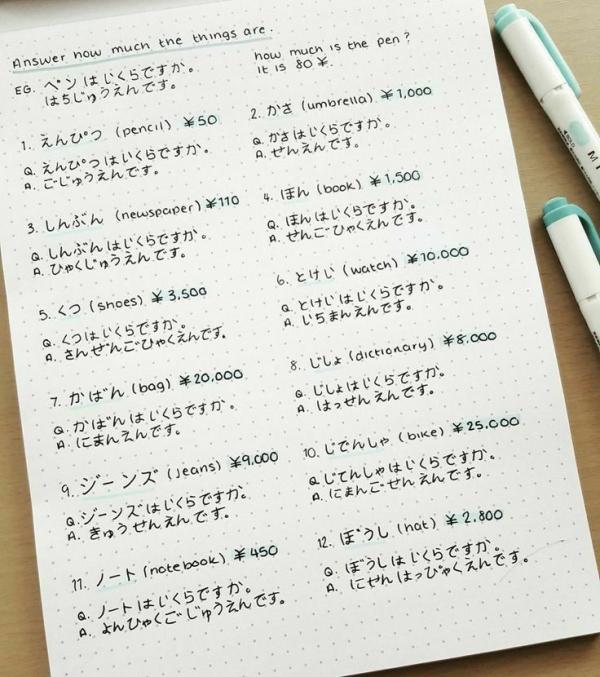 Answer how much the things are.
EG. ペンはいくらですか。
はちじゅうえんです。
how much is the pen?
It is 80 ¥.
1. えんぴつ (pencil) ¥50
Q. えんぴつはいくらですか。
A. ごじゅうえんです。
2. かさ (umbrella) ¥1,000
Q. かさはいくらですか。
A. せんえんです。
3. しんぶん (newspaper) ¥110
Q. しんぶんはいくらですか。
A. ひゃくじゅうえんです。
4. ほん (book) ¥1,500
Q. ほんはいくらですか。
A. せんごひゃくえんです。
5. くつ (shoes) ¥3,500
Q. くつはいくらですか。
A. さんぜんごひゃくえんです。
6. とけい (watch) ¥10,000
Q. とけいはいくらですか。
A. いちまんえんです。
7. かばん (bag) ¥20,000
Q. かばんはいくらですか。
A. にまんえんです。
8. じしょ (dictionary) ¥8,000
Q. じしょはいくらですか。
A. はっせんえんです。
9. ジーンズ (jeans) ¥9,000
Q. ジーンズはいくらですか。
A. きゅうせんえんです。
10. じでんしゃ (bike) ¥25,000
Q. じてんしゃはいくらですか。
A. にまんごせんえんです。
11. ノート (notebook) ¥450
Q. ノートはいくらですか。
A. よんひゃくごじゅうえんです。
12. ぼうし (hat) ¥2,800
Q. ぼうしはいくらですか。
A. にせんはっぴゃくえんです。